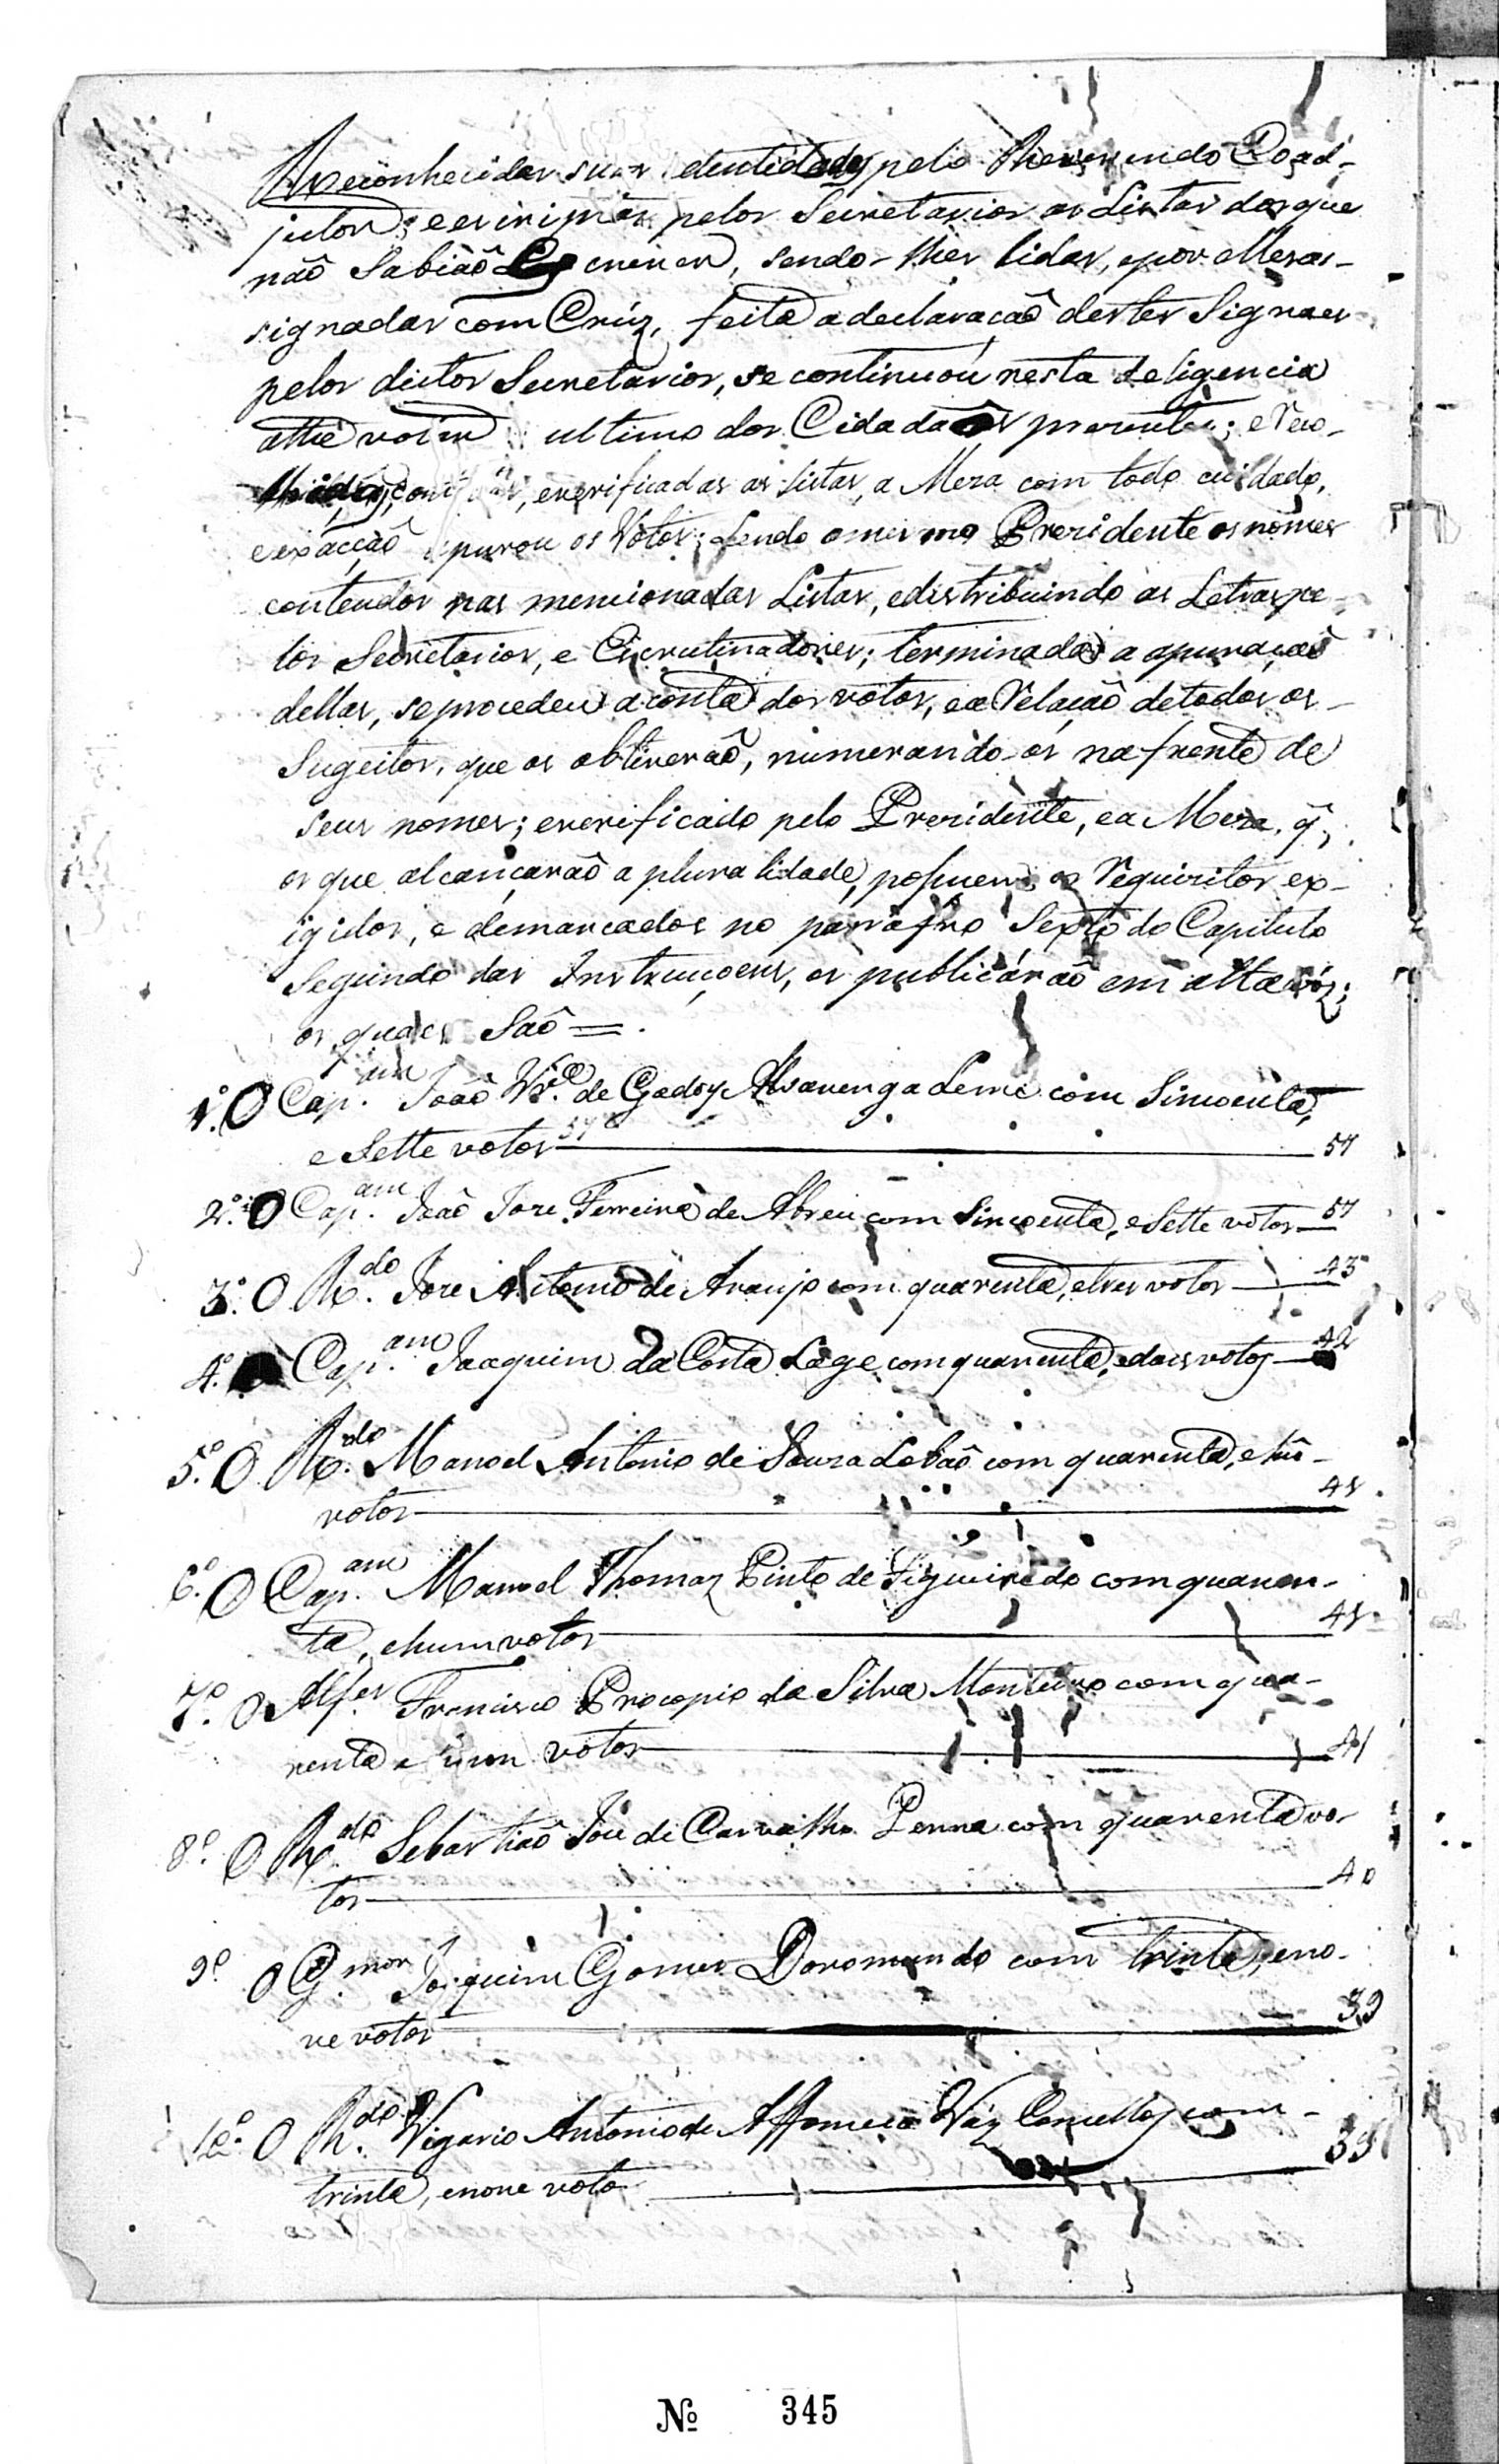 Reconhecidas suas identidades pelo Reverendo Coad-
jutor; e escriptas pelos Secretarios as Listas dos que
não Sabião Escrever, sendo-lhes lidas, e por elles as-
signadas com Cruz, feita a declaração destes Signaes
pelos dictos Secretarios, se continuou nesta deligencia
athé votar ultimo dos Cidadaõs presentes; e reco-
lhidas, contadas, e verificadas as listas, a Meza com todo cuidado,
e exacção apurou os Votos; Lendo o mesmo Prezidente os nomes
conteudos nas mencionadas Listas, e distribuindo as Letras pe-
los Secretarios, e Escrutinadores; terminada a apuração
dellas, se procedeu a conta dos votos, e a Relação de todos os
Sugeitos, que os obtiverão, numerando-os na frente de
seus nomes; e verificado pelo Prezidente, e a Meza, q̃,
os que alcançarão a pluralidade, possuem os requizitos ex-
igidos, e demarcados no parrafro Sexto do Capitulo
Segundo das Instrucçoens, os publicárão em alta vóz;
os quaes Saõ =.
1.º O Cap.am João Vi.ra de Godoy Alvarenga Leme com Sincoenta,
e Sette votos 57
2.º O Cap.am João Joze Ferreira de Abreu com Sincoenta, e Sette votos 57
3.º O R.do Joze Antonio de Araujo com quarenta, e tres votos 43
4.º O Cap.am Joaquim da Costa Lage com quarenta, e dois votos 42
5.º O R.do Manoel Antonio de Souza Lobaõ com quarenta, e hũ
votos 41.
6.º O Cap.am Manoel Thomaz Pinto de Figueiredo com quaren-
ta, e hum votos 41
7.º O Alf.es Francisco Procopio da Silva Monteiro com qua-
renta e um votos 41
8.º O R.do Sebastiaõ Joze de Carvalho Penna com quarenta vo-
tos 40
9.º O G. mor Joaquim Gomes Doromundo com trinta, e no-
ve votos 39
10.º O R.do Vigario Antonio de Affonseca Vaz Concellos com
trinta, e nove votos 39
Nº 345